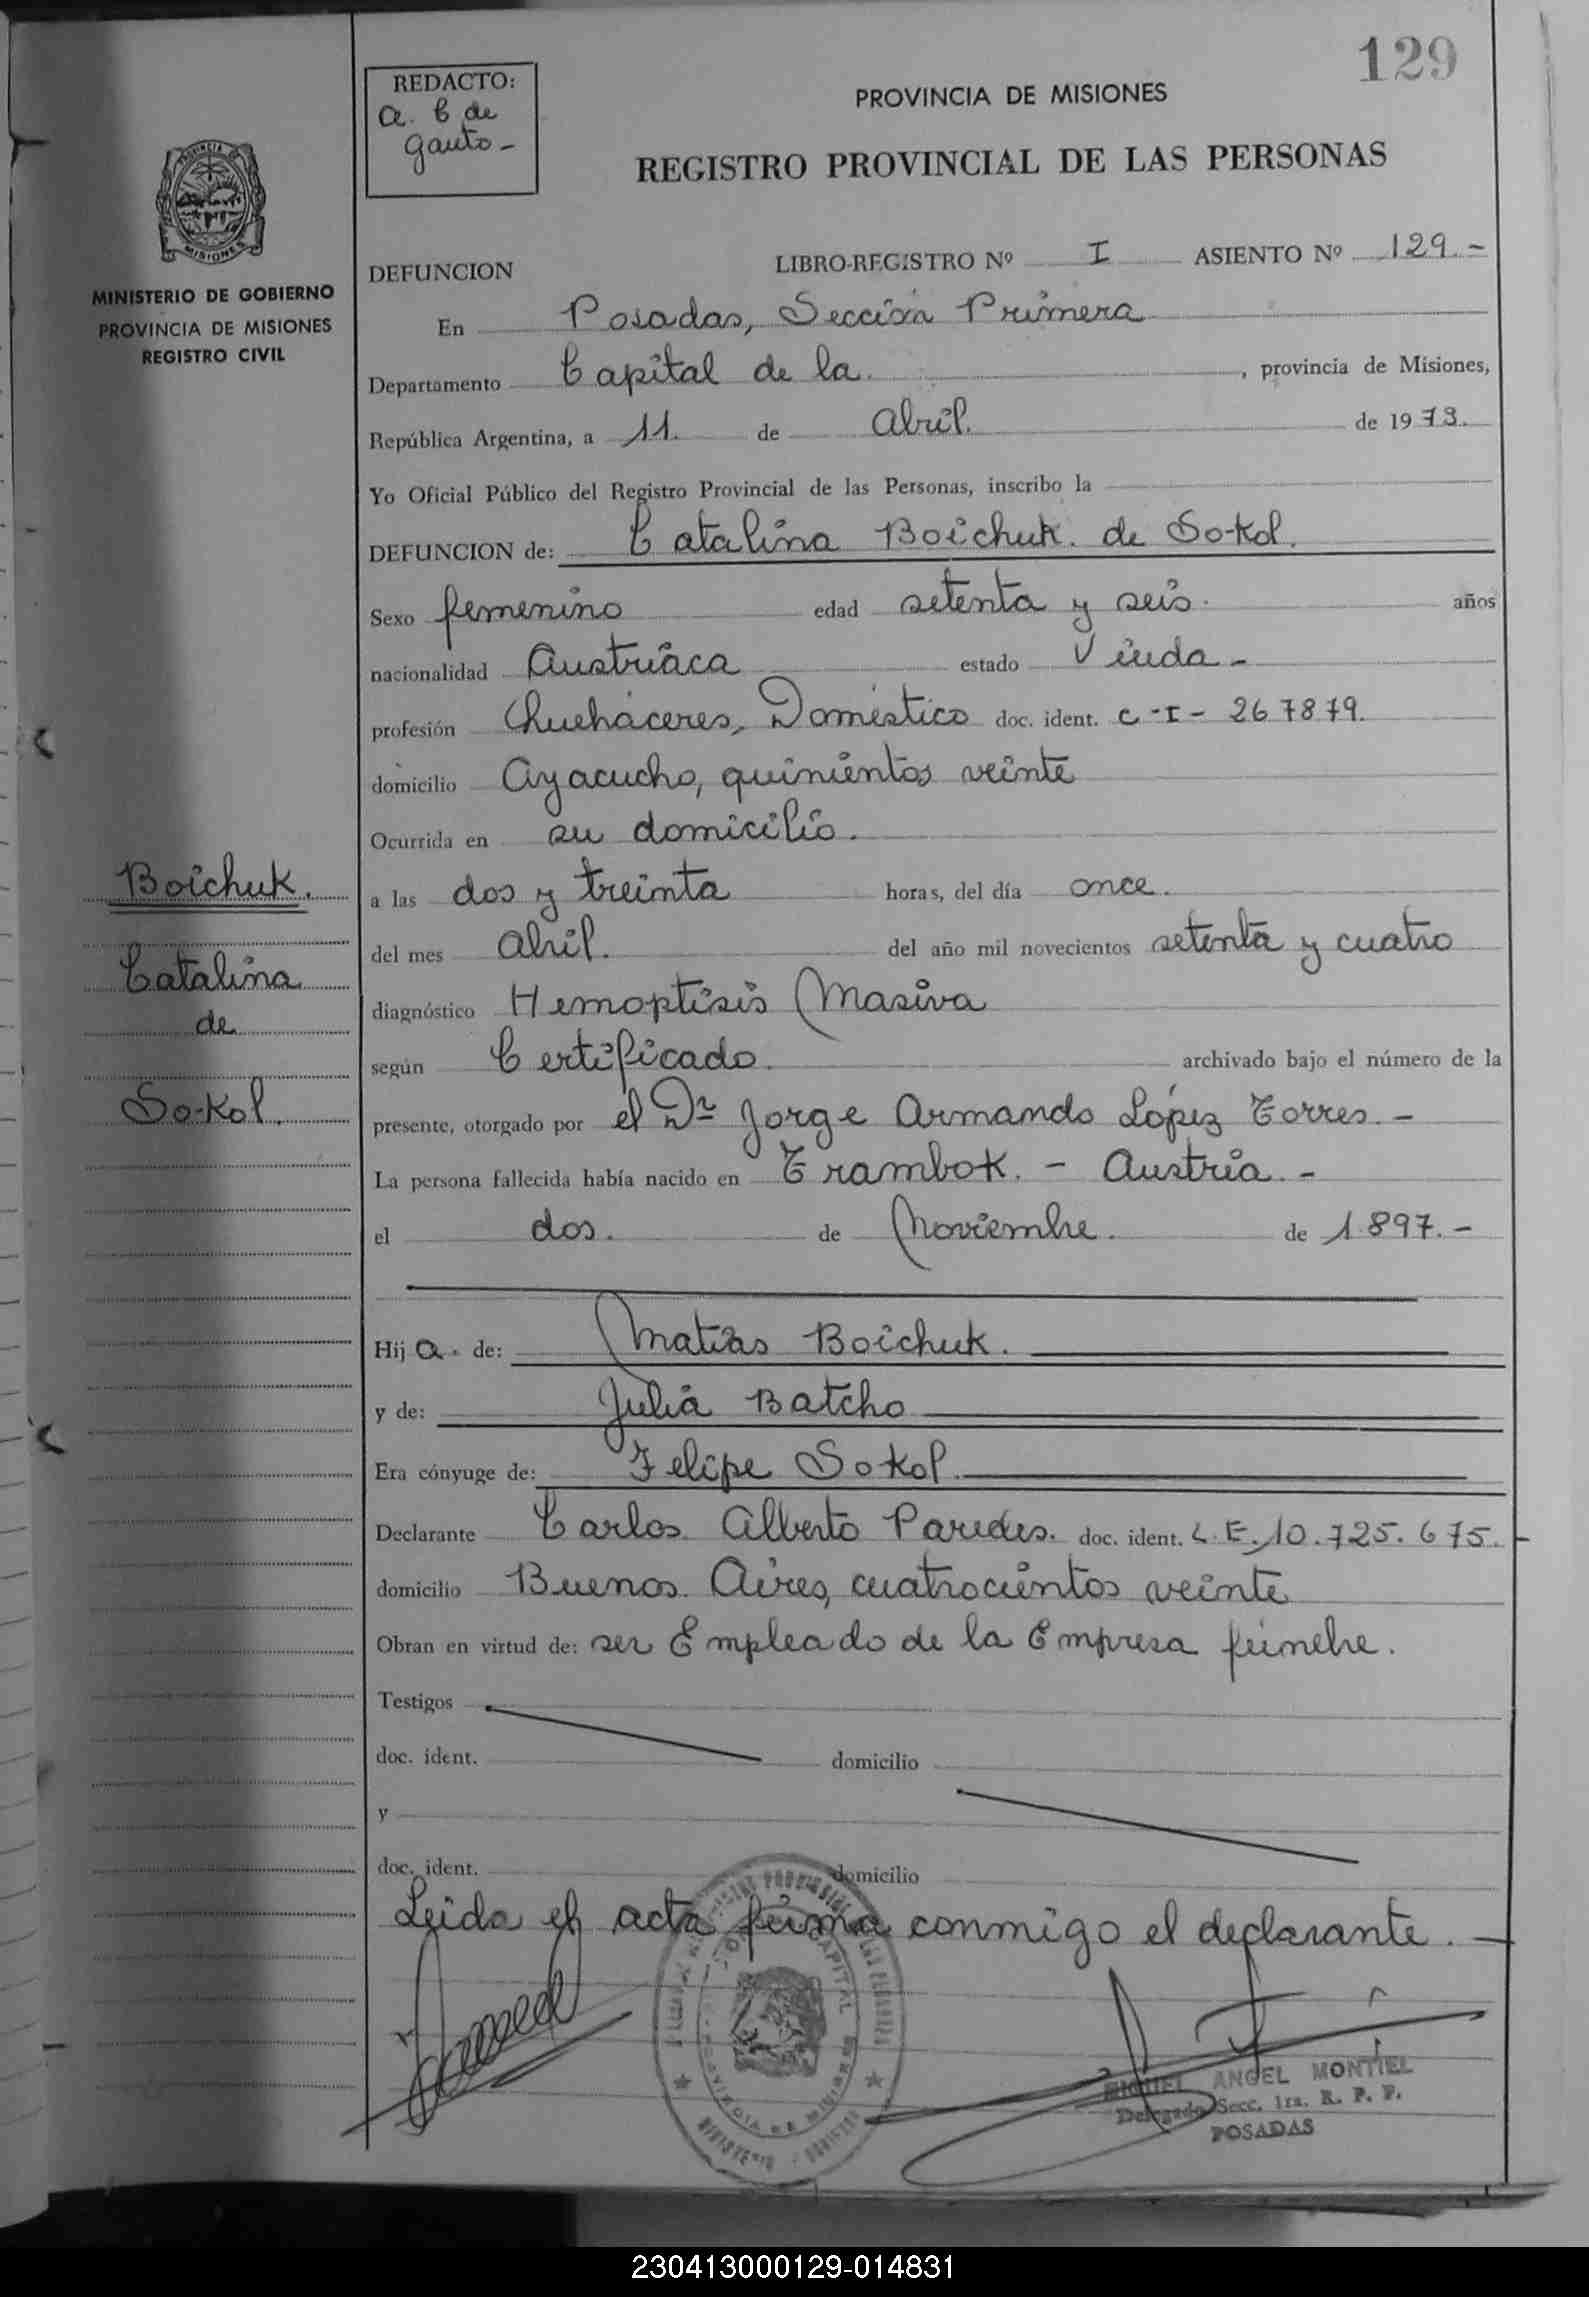 129
REDACTO:
a. b de
gauto -
PROVINCIA DE MISIONES
REGISTRO PROVINCIAL DE LAS PERSONAS
PROVINCIA DE
MISIONES
MINISTERIO DE GOBIERNO
PROVINCIA DE MISIONES
REGISTRO CIVIL
DEFUNCION LIBRO-REGISTRO Nº I ASIENTO Nº 129.-
En Posadas, Sección Primera
Departamento Capital de la. , provincia de Misiones,
República Argentina, a 11. de abril. de 1973.
Yo Oficial Público del Registro Provincial de las Personas, inscribo la
DEFUNCION de: Catalina Boichuk. de Sokol.
Sexo femenino edad setenta y seis. años
nacionalidad Austriaca estado Viuda -
profesión Quehaceres, Doméstico doc. ident. C-I- 267879.
domicilio Ayacucho, quinientos veinte
Ocurrida en su domicilio.
a las dos y treinta horas, del día once.
del mes abril. del año mil novecientos setenta y cuatro
diagnóstico Hemoptisis Masiva
según Certificado. archivado bajo el número de la
presente, otorgado por el Dr Jorge Armando López Torres. -
La persona fallecida había nacido en Trambok. - Austria. -
el dos. de Noviembre. de 1.897.-
Boichuk.
Catalina
de
Sokol.
Hija. de: Matias Boichuk.
y de: Julia Batcho
Era cónyuge de: Felipe Sokol.
Declarante Carlos Alberto Paredes. doc. ident. L.E. 10.725.675. -
domicilio Buenos Aires, cuatrocientos veinte
Obran en virtud de: ser Empleado de la Empresa fúnebre.
Testigos
doc. ident. domicilio
y
doc. ident. domicilio
Leida el acta firma conmigo el declarante. -
MIGUEL ANGEL MONTIEL
Delegado Secc. 1ra. R. P. P.
POSADAS
230413000129-014831